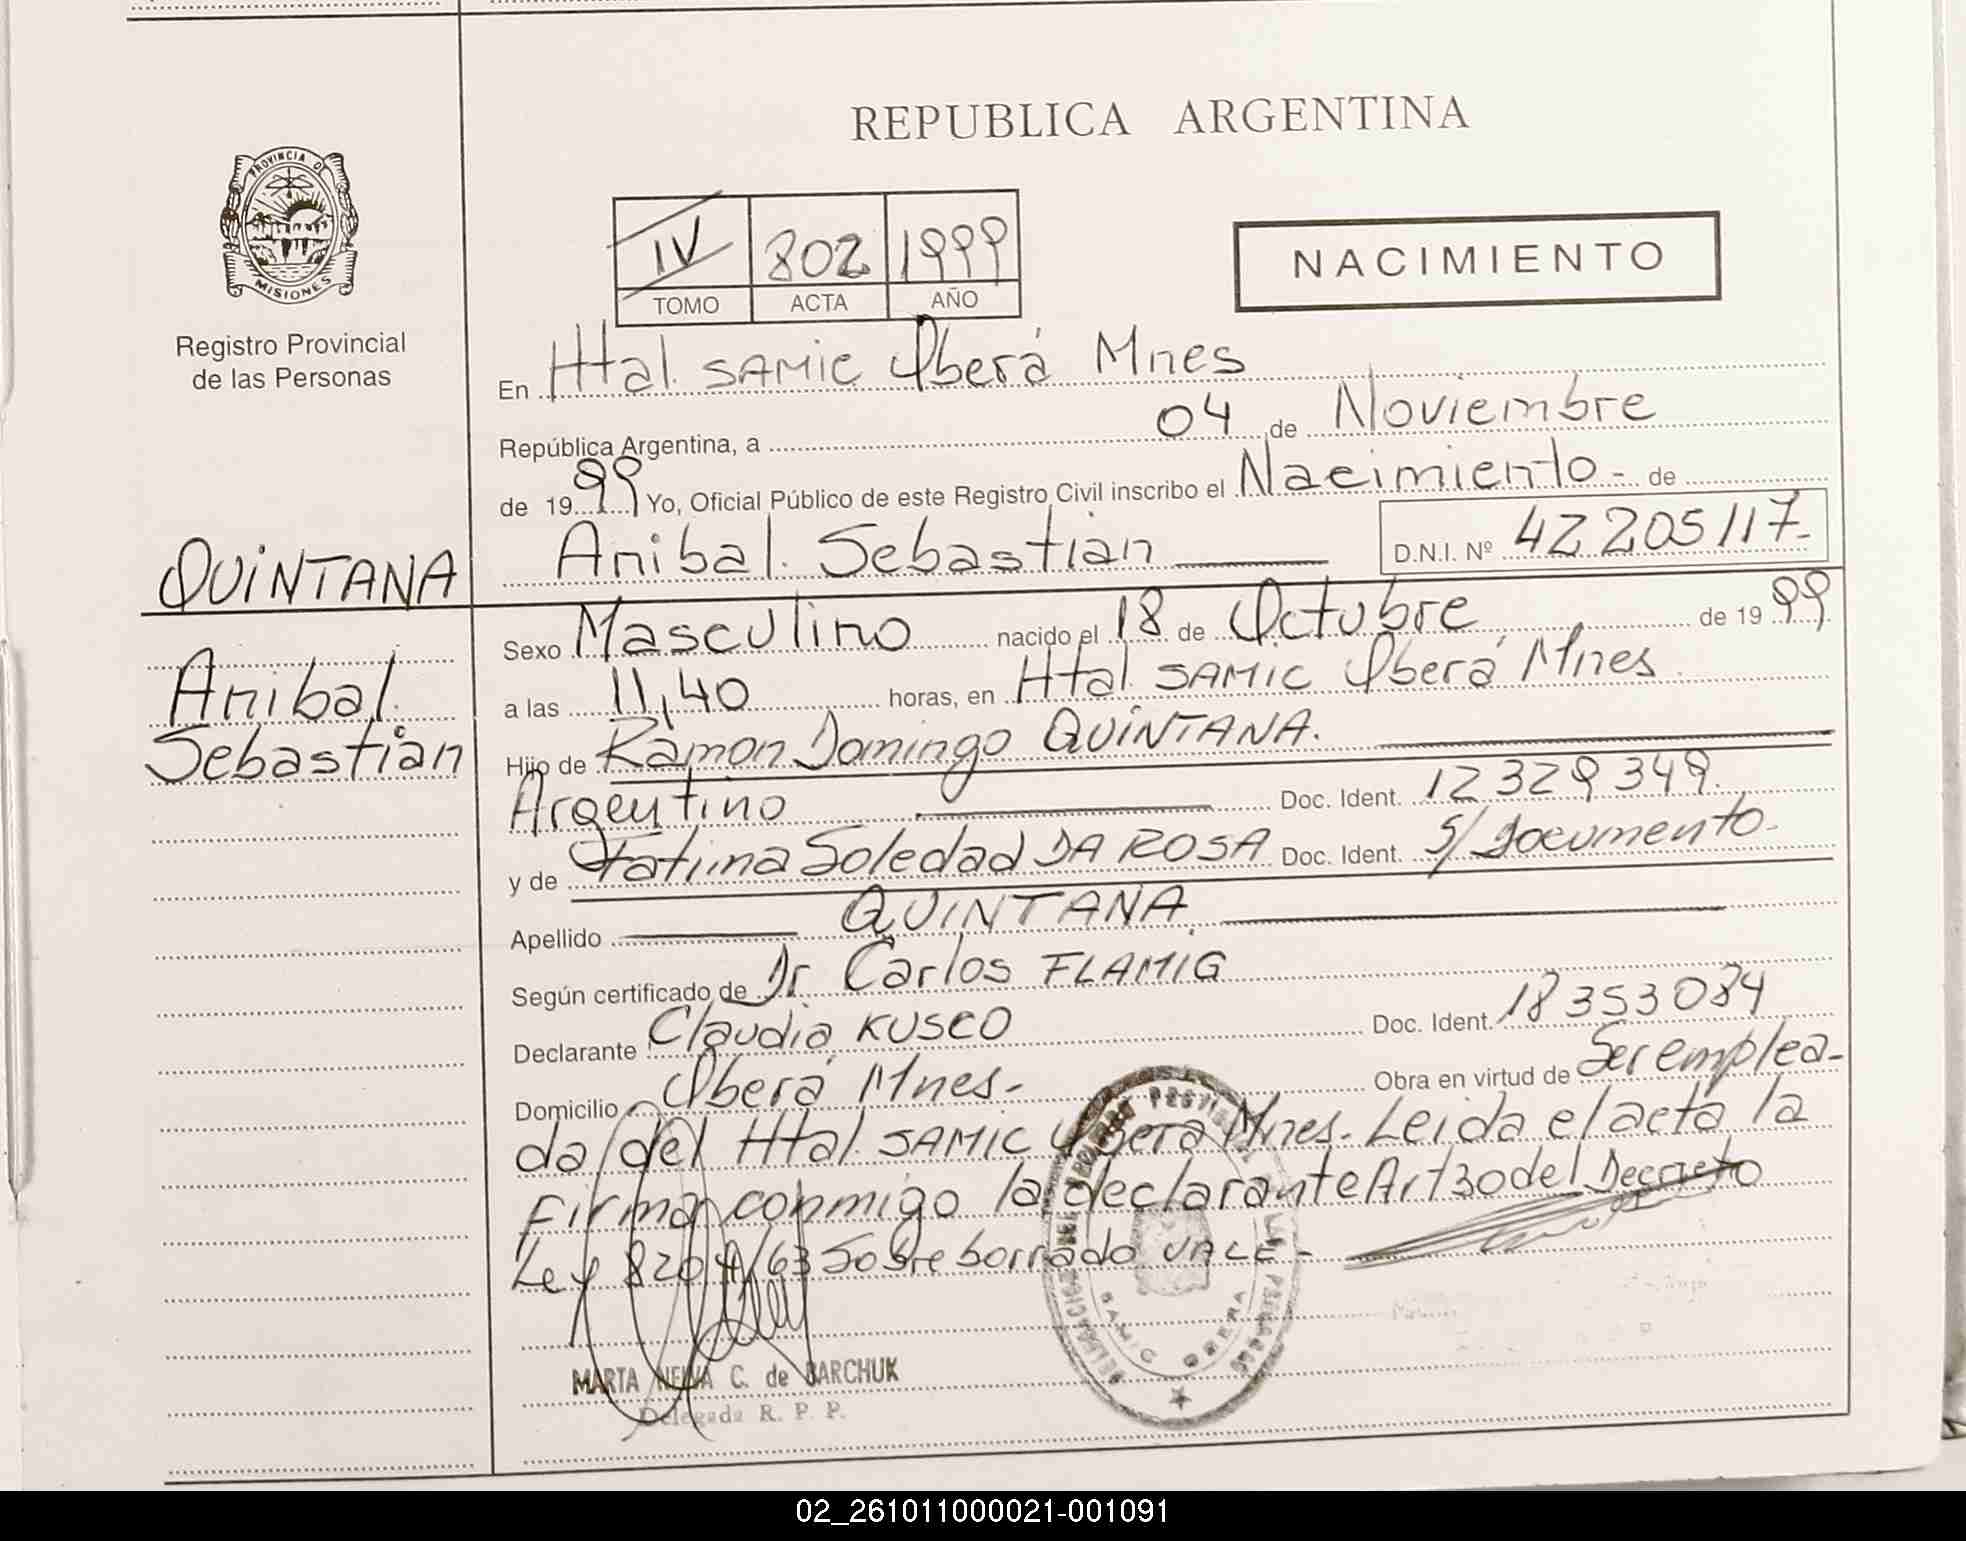 REPUBLICA ARGENTINA
PROVINCIA DE
MISIONES
Registro Provincial
de las Personas
IV 802 1999
TOMO ACTA AÑO
NACIMIENTO
En Htal. SAMIC Oberá Mnes
República Argentina, a 04 de Noviembre
de 1999 Yo, Oficial Público de este Registro Civil inscribo el Nacimiento - de
Anibal Sebastián D.N.I. Nº 42205117-
QUINTANA
Anibal
Sebastián
Sexo Masculino nacido el 18 de Octubre de 1999
a las 11,40 horas, en Htal. SAMIC Oberá Mnes
Hijo de Ramon Domingo QUINTANA.
Argentino Doc. Ident. 12329349.
y de Fatima Soledad DA ROSA Doc. Ident. S/Documento-
Apellido QUINTANA
Según certificado de Dr Carlos FLAMIG
Declarante Claudia KUSCO Doc. Ident. 18353084
Domicilio Oberá Mnes- Obra en virtud de Ser emplea-
da del Htal. SAMIC Oberá Mnes. Leida el acta la
Firma conmigo la declarante Art 30 del Decreto
Ley 8204/63 Sobre borrado VALE-
SAMIC OBERA
MARTA C. de BARCHUK
Delegada R. P. P.
02_261011000021-001091